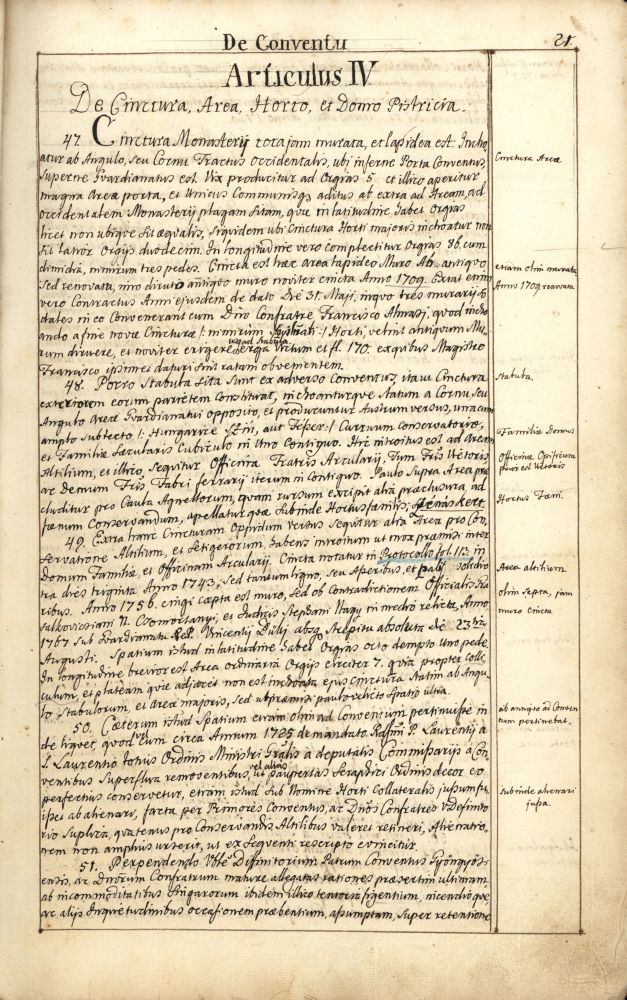 De Conventu
21.
Articulus IV
De Cinctura, Area, Horto, et Domo Pistricia.
47. Cinctura Monasterij tota jam murata, et lapidea est. Incho
atur ab Angulo, seu Cornu Tractus Occidentalis, ubi inferne Porta Conventus,
Superne Gvardianatus est. Vix producitur ad Orgias 5. et illico aperitur
magna Areae porta, et Unicus Communisqz aditus ab extra ad Aream, ad
occidentalem Monasterij plagam sitam, quae in latitudine habet Orgias
licet non ubique sit aequalis, siquidem ubi Cinctura Horti majoris inchoatur non
sit latior Orgijs duodecim. In longitudine vero complectitur Orgias 36. cum
dimidia, nimirum tres pedes. Cincta est haec Area lapideo Muro Ab antiquo
sed renovata, nam diruto antiquo muro noviter cincta Anno 1709. Extat enim
vero Contractus Anni ejusdem de dato Die 31. Maji, in quo tres murarij So
dales in eo Convenerant cum Dino Confratre Francisco Almasj, quod incho
ando a fine novae Cincturae /: nimirum :/ Horti, velint antiquum Mu
rum diruere, et noviter erigere usqz ad Stabula erga Victum et fl. 170. ex quibus Magistro
Francisco ipsimet daturi sint ratam obvenientem.
48. Porro Stabula sita sunt ex adverso Conventus, ita ut Cincturae
exteriorem eorum parietem Constituat, inchoanturque statim a Cornu, seu
Angulo Areae Gvardianatui opposito, et producuntur Austrum versus, una cum
amplo subtecto /: Hungarice Szin, aut :/ Curruum Conservatorio,
et Familiae Saecularis Cubiculo in Uno Contiguo. Hic introitus est ad Aream
Altilium, et illico sequitur Officina Fratris Arcularij, Tum Fris Vietoris
ac demum Fris Fabri ferrarij iterum in Contiguo. Paulo supra Area prae
cluditur pro Caula Agnellorum, quam rursum excipit alia praeclusura, ad
faenum Conservandum, apellaturqve subinde Hortus faenilis, Szénás kert.
49. Extra hanc Cincturam Oppidum versus sequitur alia Area pro Con
servatione Altilium, et Setigerorum, habens introitum ut mox praemisi inter
Domum Familiae, et Officinam Arcularij. Cincta notatur in Protocollo fol. 113. in
tra dies triginta Anno 1743, sed tantum ligno, seu Asseribus, et palis solido
ribus. Anno 1756. cingi caepta est muro, sed ob Contradictionem Officialis
N. Csomortanyi, et Judicis Stephani Nagy in medio relicta, Anno
1767 sub Gvardianatu R. P. Vincentij absqz Strepitu absoluta Die 23tia
Augusti. Spatium istud in latitudine habet Orgias octo dempto Uno pede.
In longitudine brevior est Area ordinaria Orgijs circiter 7. quia propter colli
culum, et plateam quae adjacet non est inchoata ejus cinctura statim ab Angu
lo Stabulorum, et Areae majoris, sed ut praemisi paulo relicto spatio ultra.
50. Caeterum istud Spatium etiam olim ad Conventum pertinuisse in
de liquet, quod vel cum circa Annum 1725 de mandato Rssmi P. Laurentij a
S. Laurentio totius Ordinis Ministri Gralis a deputatis Commissarijs a Con
ventibus Superflua removentibus, vel alias ut paupertas Seraphici Ordinis decor eo
perfectius conservetur, etiam istud sub Nomine Horti Collateralis jussum fu
isset ab alienari, facta per Primores Conventus, ac Dnos Confratres V. Definito
rio Supplica, quatenus pro Conservandis Altilibus valeret retineri, Alienatio
nem non amplius urserit, ut ex sequenti rescripto evincitur.
51. Perpendendo Vble Diffinitorium Patrum Conventus Gyöngyösi
ensis, ac Dnorum Confratrum mature allegatas rationes praesertim ultimam
ab incommoditatibus Zingarorum ibidem illico tentoria figentium, incendioqve
ac alijs Inquietudinibus occasionem praebentium, assumptam, super retentione
Cinctura Areae
etiam olim murata
Anno 1709 renovata
Stabula.
Familiae Domus
Officinae Opificum
prior est Vietoris
Hortus Faeni.
Area altilium
olim Septa, jam
muro cincta
ab antiquo ad Conven
tum pertinebat.
Subinde alienari
jussa.